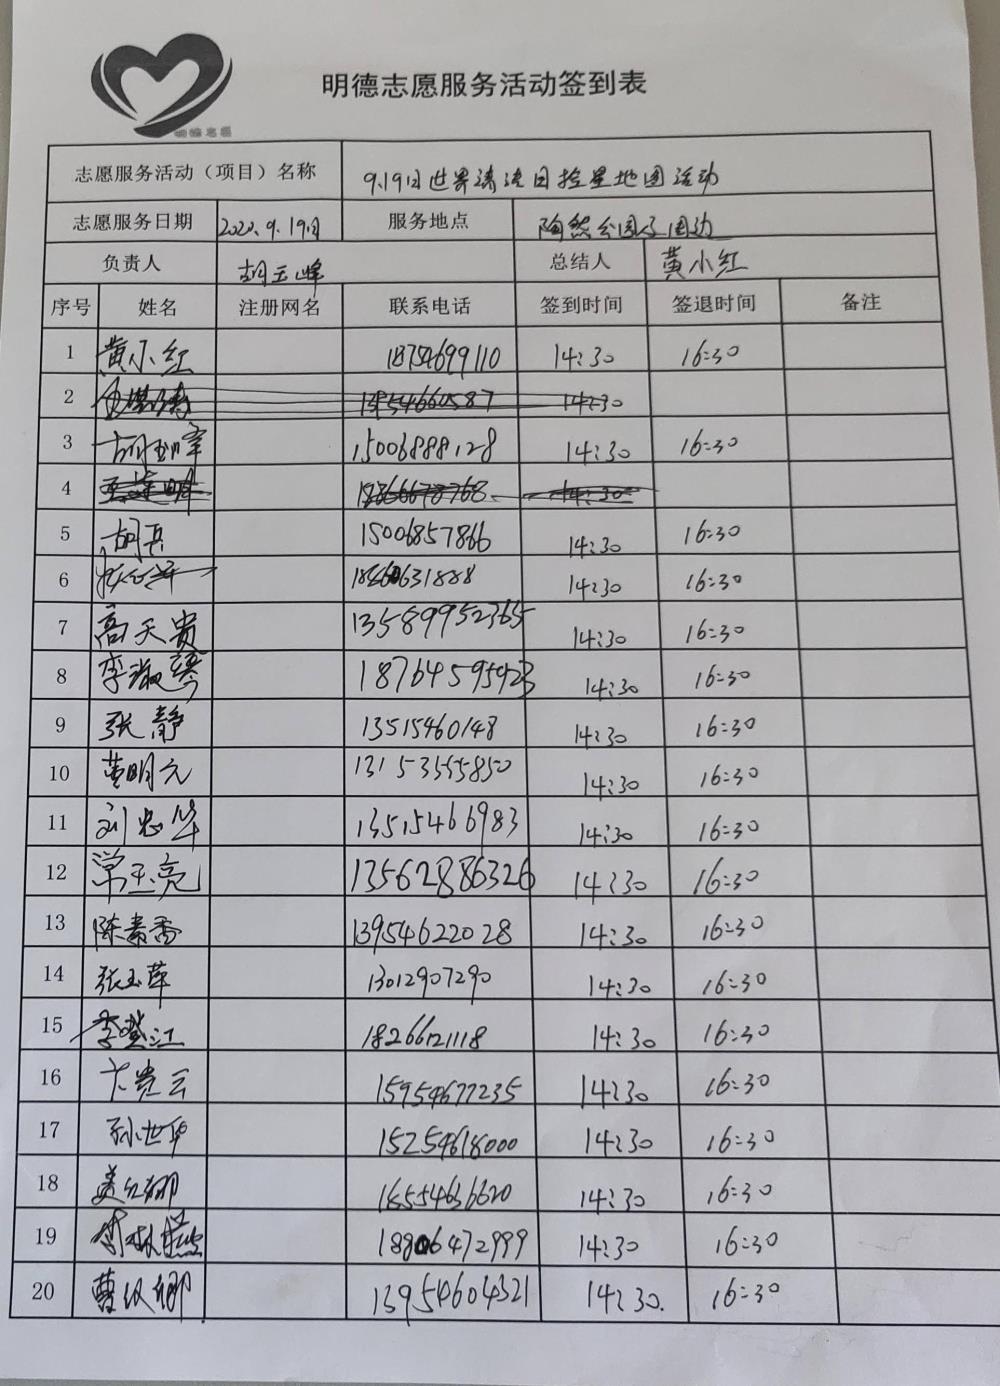 明德志愿
明德志愿服务活动签到表
志愿服务活动（项目）名称 9.19日世界清洁日捡星地图活动
志愿服务日期 2020.9.19日 服务地点 陶然公园及周边
负责人 胡玉峰 总结人 黄小红
序号 姓名 注册网名 联系电话 签到时间 签退时间 备注
1 黄小红 18754699110 14:30 16:30
2 14:30
3 胡玉峰 15006888128 14:30 16:30
4 14:30
5 胡兵 15006857866 14:30 16:30
6 14:30 16:30
7 高天贵 13589952365 14:30 16:30
8 李淑琴 18764595923 14:30 16:30
9 张静 13515460148 14:30 16:30
10 黄明元 13153555850 14:30 16:30
11 刘忠华 13515466983 14:30 16:30
12 常玉亮 13562886326 14:30 16:30
13 陈素香 13954622028 14:30 16:30
14 张玉萍 13012907290 14:30 16:30
15 李登江 18266121118 14:30 16:30
16 卞贵云 15954677235 14:30 16:30
17 孙世华 15254618000 14:30 16:30
18 姜红娜 18554636620 14:30 16:30
19 18806472999 14:30 16:30
20 曹红娜 13954604321 14:30. 16:30